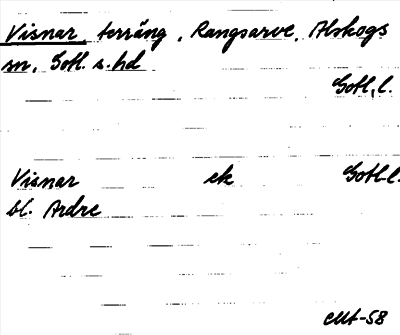 Visnar, terräng, Rangsarve, Alskogs
sn, Gotl. s. hd
Gotl. l.
Visnar ek Gotl. l.
bl. Ardre